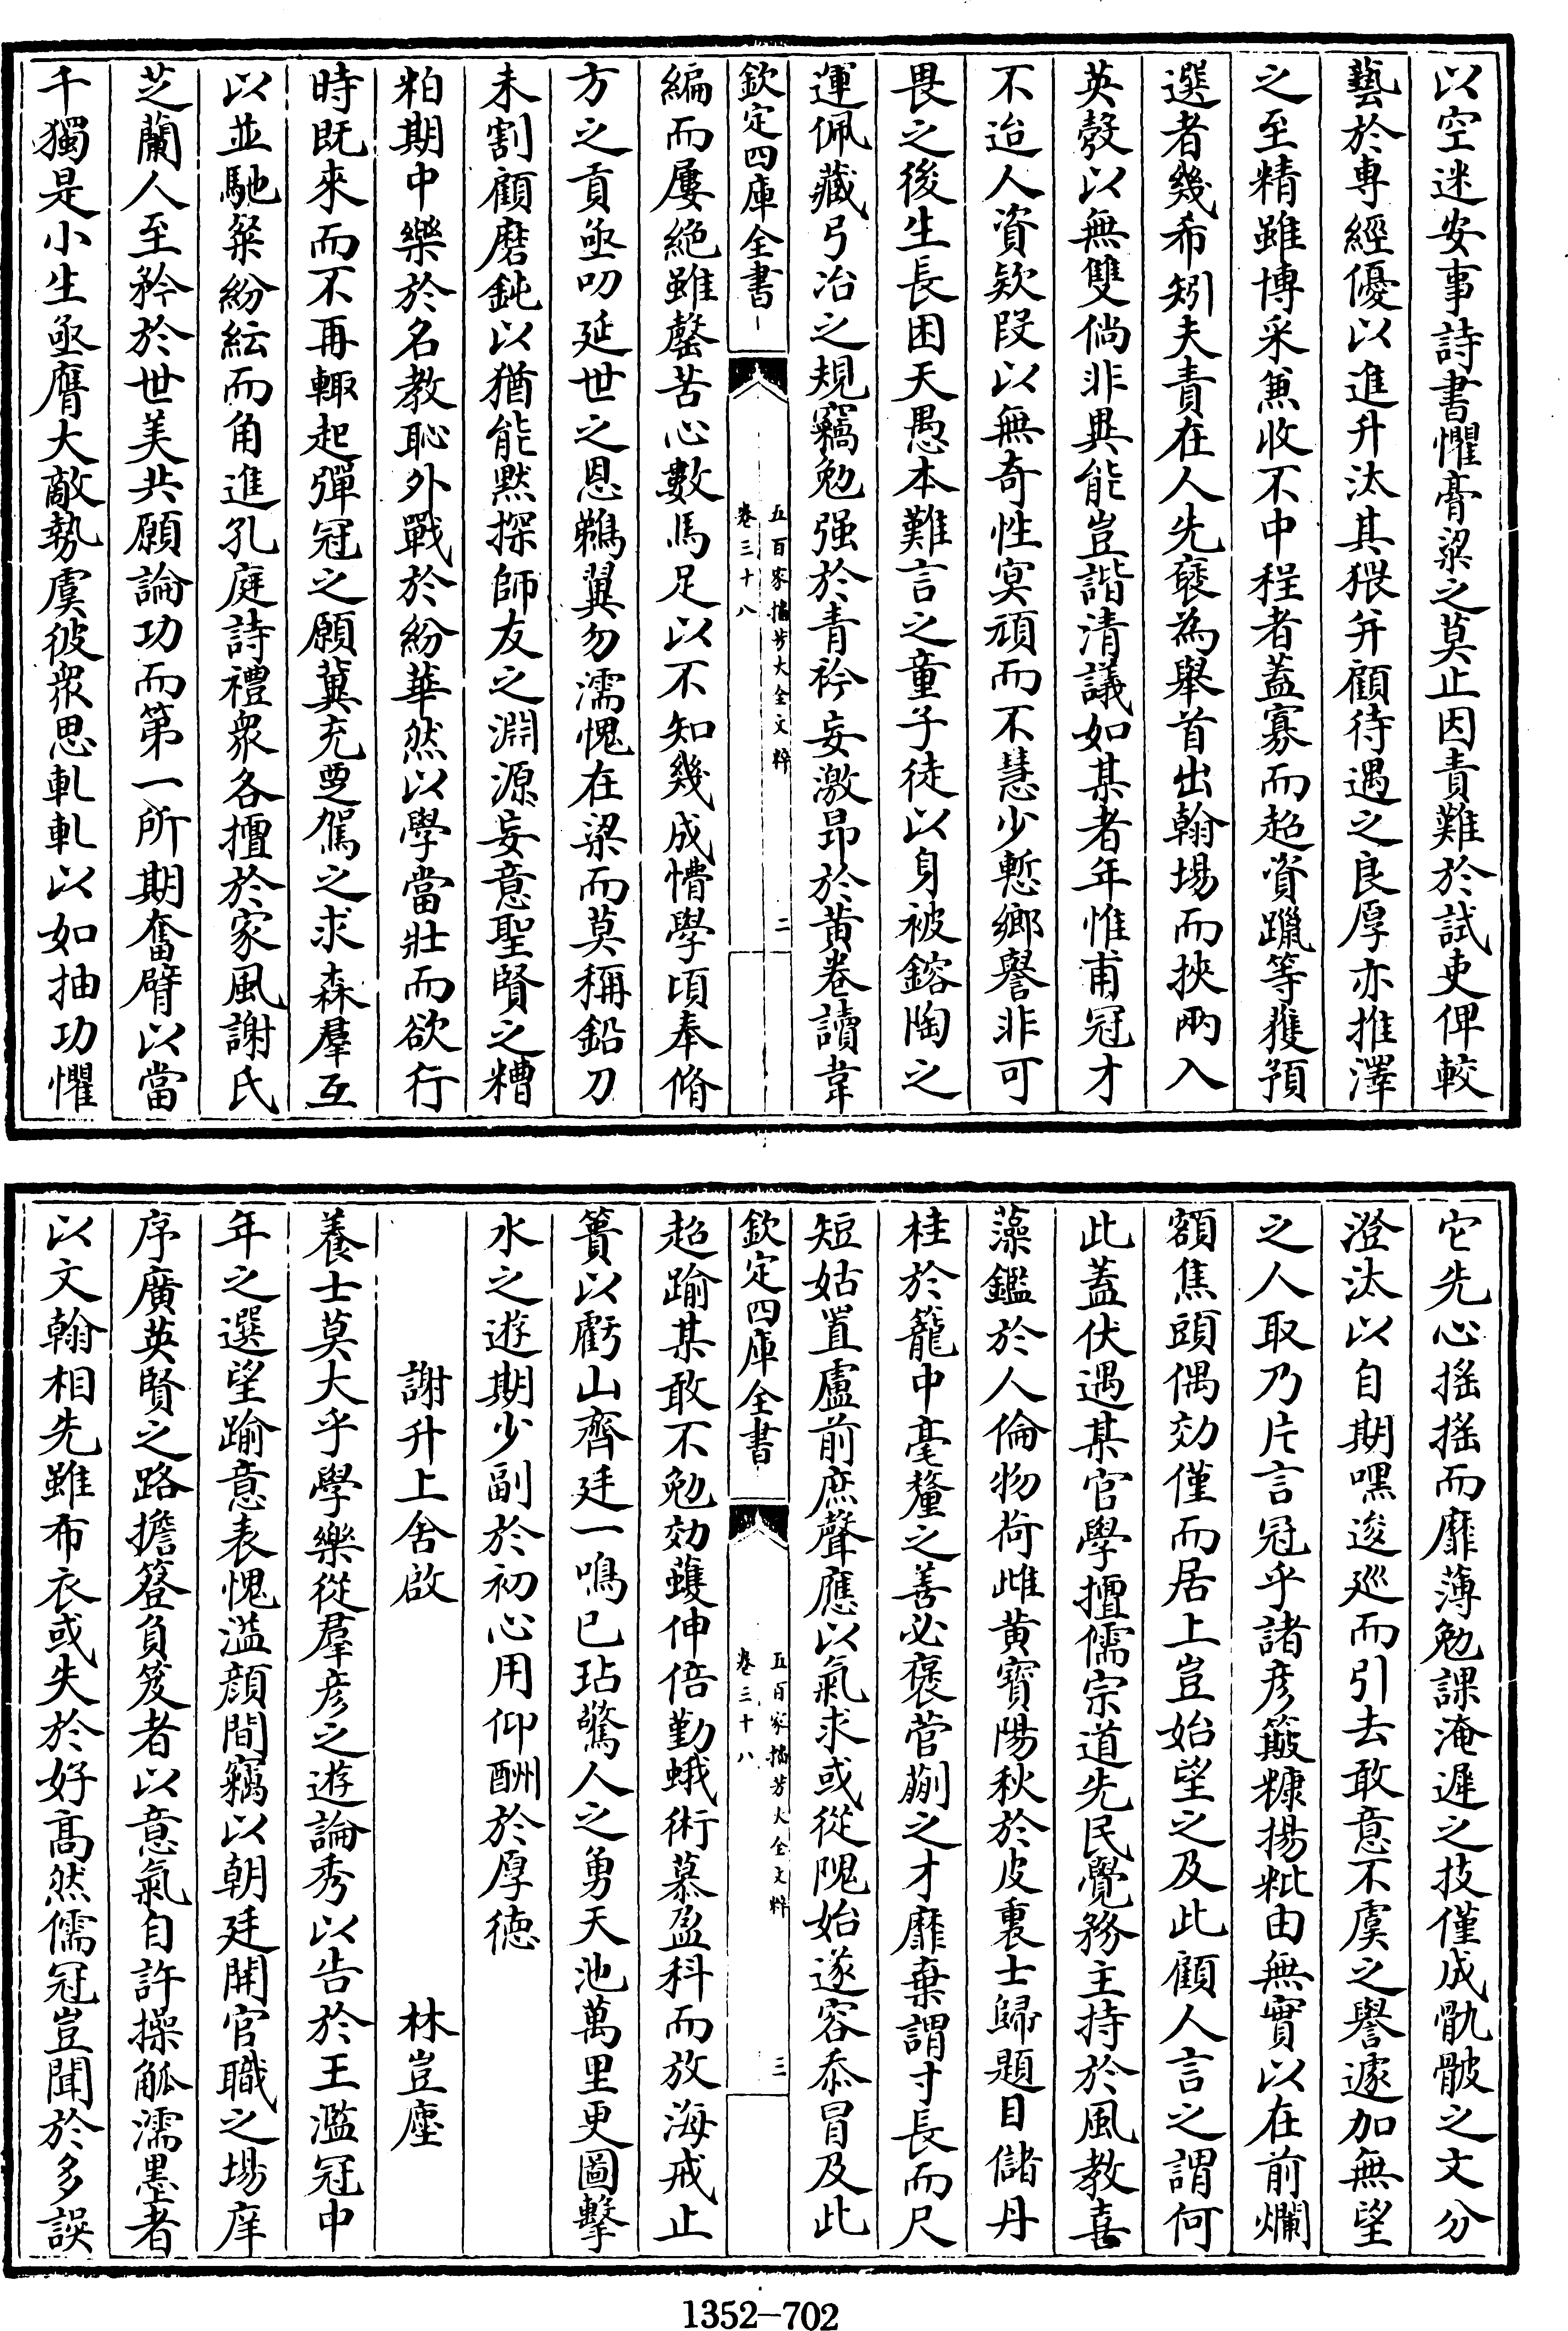 以空迷安事詩書懼膏粱之莫止因責難於試吏俾較
藝於專經優以進升汰其猥并顧待遇之良厚亦推澤
之至精雖博采兼收不中程者蓋寡而超資躐等獲預
選者幾希矧夫責在人先褎為舉首出翰場而挾兩入
英彀以無雙倘非異能豈諧清議如某者年惟甫冠才
不迨人資欵段以無奇性冥頑而不慧少慙鄉譽非可
畏之後生長困天愚本難言之童子徒以身被鎔陶之
運佩藏弓冶之規竊勉强於青衿妄激昂於黄卷讀韋
欽定四庫全書
五百家播芳大全文粹
卷三十八
二
編而屢絶雖罄苦心數馬足以不知幾成懵學頃奉脩
方之貢亟叨延世之恩鵜翼勿濡愧在梁而莫稱鉛刀
未割顧磨鈍以猶能黙探師友之淵源妄意聖賢之糟
粕期中樂於名教恥外戰於紛華然以學當壯而欲行
時既來而不再輙起彈冠之願冀充覂駕之求森羣互
以並馳粲紛紜而角進孔庭詩禮衆各擅於家風謝氏
芝蘭人至矜於世美共願論功而第一所期奮臂以當
千獨是小生亟膺大敵勢虞彼衆思軋軋以如抽功懼
它先心摇摇而靡薄勉課淹遲之技僅成骫骳之文分
澄汰以自期嘿逡廵而引去敢意不虞之譽遽加無望
之人取乃片言冠乎諸彦簸糠揚粃由無實以在前爛
額焦頭偶効僅而居上豈始望之及此顧人言之謂何
此蓋伏遇某官學擅儒宗道先民覺務主持於風教喜
藻鑑於人倫物荷雌黄寶陽秋於皮裏士歸題目儲丹
桂於籠中毫釐之善必褒菅蒯之才靡棄謂寸長而尺
短姑置盧前庶聲應以氣求或從隗始遂容忝冒及此
欽定四庫全書
五百家播芳大全文粹
卷三十八
三
超踰某敢不勉効蠖伸倍勤蛾術慕盈科而放海戒止
簣以虧山齊廷一鳴已玷驚人之勇天池萬里更圖擊
水之遊期少副於初心用仰酬於厚德
謝升上舍啟 林豈塵
養士莫大乎學樂從羣彦之遊論秀以告於王濫冠中
年之選望踰意表愧溢顔間竊以朝廷開官職之場庠
序廣英賢之路擔簦負笈者以意氣自許操觚濡墨者
以文翰相先雖布衣或失於好髙然儒冠豈聞於多誤
1352-702